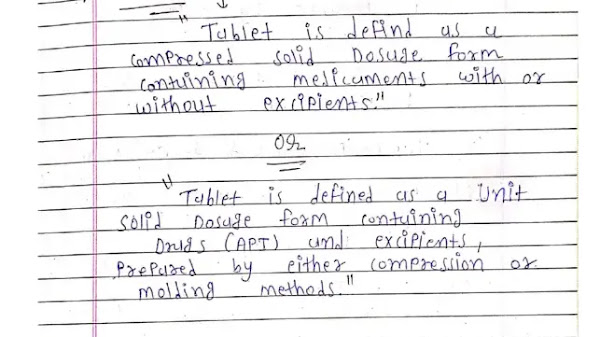 "Tablet is defind as a
compressed solid Dosage form
containing medicaments with or
without excipients."
OR
"Tablet is defined as a Unit
solid Dosage form containing
Drugs (API) and excipients,
Prepared by either compression or
molding methods."